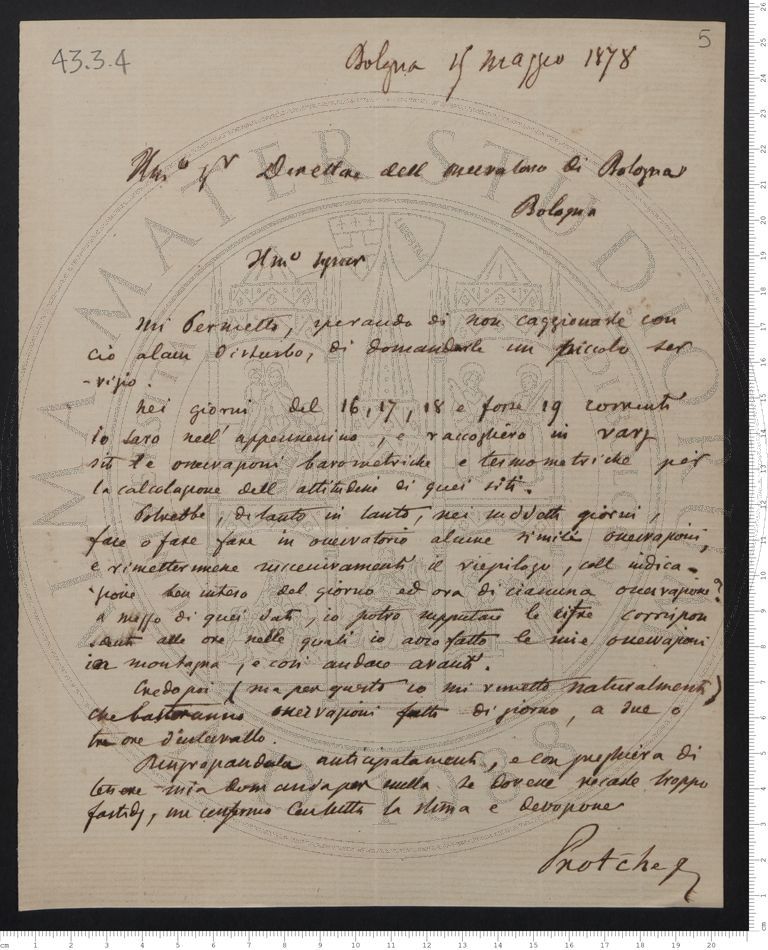 43.3.4
5
Bologna 15 Maggio 1878
Illmo Sgr Direttore dell osservatorio di Bologna
Bologna
Illmo Signor
Mi Permetto, sperando di non caggionarle con
ciò alcun disturbo, di domandarle un piccolo ser
-vizio.
Nei giorni del 16, 17, 18 e forse 19 corrente
io sarò nell' appennenino, e raccoglierò in varj
siti le osservazioni barometriche e termometriche per
la calcolazione dell attitudini di quei siti.
Potrebbe, di tanto in tanto, nei suddetti giorni,
fare o fare fare in osservatorio alcune simili osservazioni,
e rimettermene successivamente il riepilogo, coll indica-
zione ben inteso del giorno ed ora di ciascuna osservazione?
a mezzo di quei dati, io potrò supputare le cifre corrispon
denti alle ore nelle quali io avrò fatto le mie osservazioni
in montagna, e così andare avanti.
Credo poi (ma per questo io mi rimetto naturalmente)
che basteranno osservazioni fatte di giorno, a due o
tre ore d'intervallo.
Ringraziandola anticipatamente, e con preghiera di
tenere mia domanda per nulla se dovesse recarle troppo
fastidj, me confermo con tutta la stima e devozione
ALMA MATER STUDIORUM
A.D. 1088